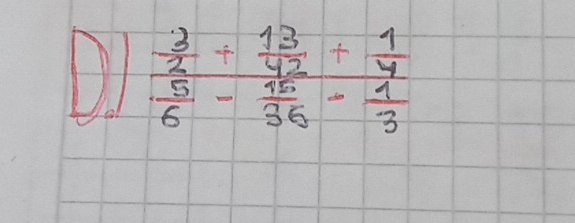 D.) 3/2 + 13/42 + 1/4
5/6 - 15/36 - 1/3